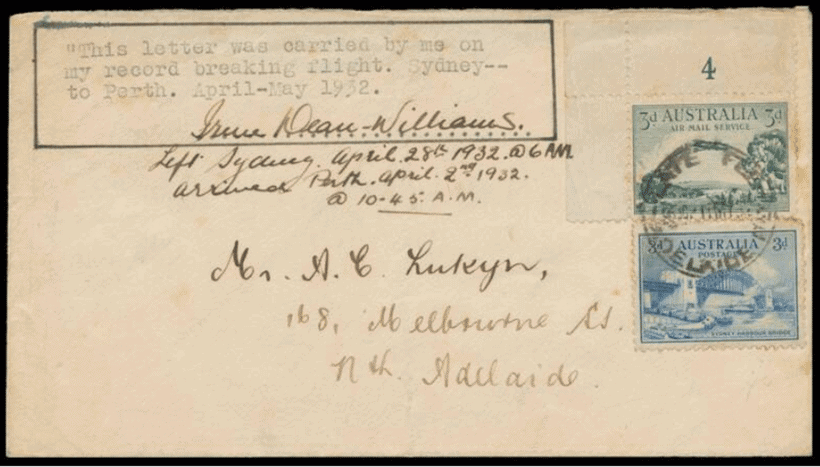 "This letter was carried by me on
my record breaking flight. Sydney--
to Perth. April-May 1932.
Irene Dean-Williams.
Left Sydney. April. 28th 1932. @ 6 AM
arrived Perth. April. 2nd 1932.
@ 10-45. A.M.
Mr. A. C. Lukyn,
168, Melbourne St.
Nth. Adelaide.
4
3d AUSTRALIA 3d
AIR MAIL SERVICE
LATE
3d AUSTRALIA 3d
POSTAGE
ADELAIDE
SYDNEY HARBOUR BRIDGE